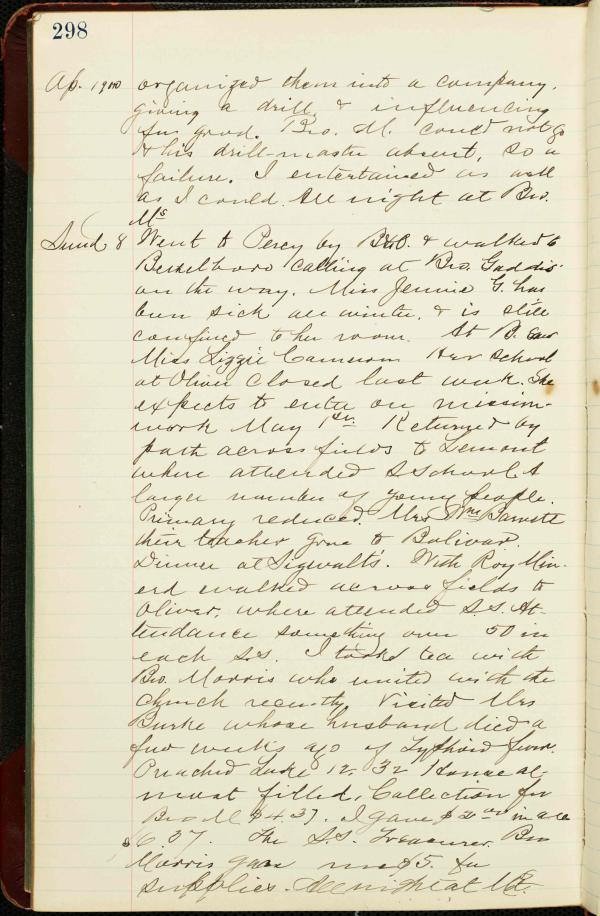 298
Ap. 1900 organized them into a company,
giving a drill, & influencing
for good. Bro. M. could not go
& his drill-master absent, so a
failure. I entertained as well
as I could. All night at Bro.
Ms
Sund 8 Went to Percy by B&O. & walked to
calling at Bro. Gaddis'
on the way. Miss Jennie G. has
been sick all winter, & is still
confined to her room. At B. saw
Miss Lizzie Cameron Her school
at Oliver closed last week. She
expects to enter on mission-
work May 1st. Returned by
path across fields to Lemont
where attended S School. A
larger number of young people.
Primary reduced. Mrs Wm Barnett
their teacher gone to Bolivar.
Dinner at Sigwalt's. With Roy Min-
erd walked across fields to
Oliver, where attended S.S. At-
tendance something over 50 in
each S.S. I took tea with
Bro. Morris who united with the
church recently. Visited Mrs
Burke whose husband died a
few weeks ago of Typhoid fever.
Preached Luke 12:32 House al-
most filled. Collection for
Bro M $4.37. I gave $2.00 in all
$6.37. The S.S. Treasurer. Bro
Morris gave me $5 for
supplies. All night at